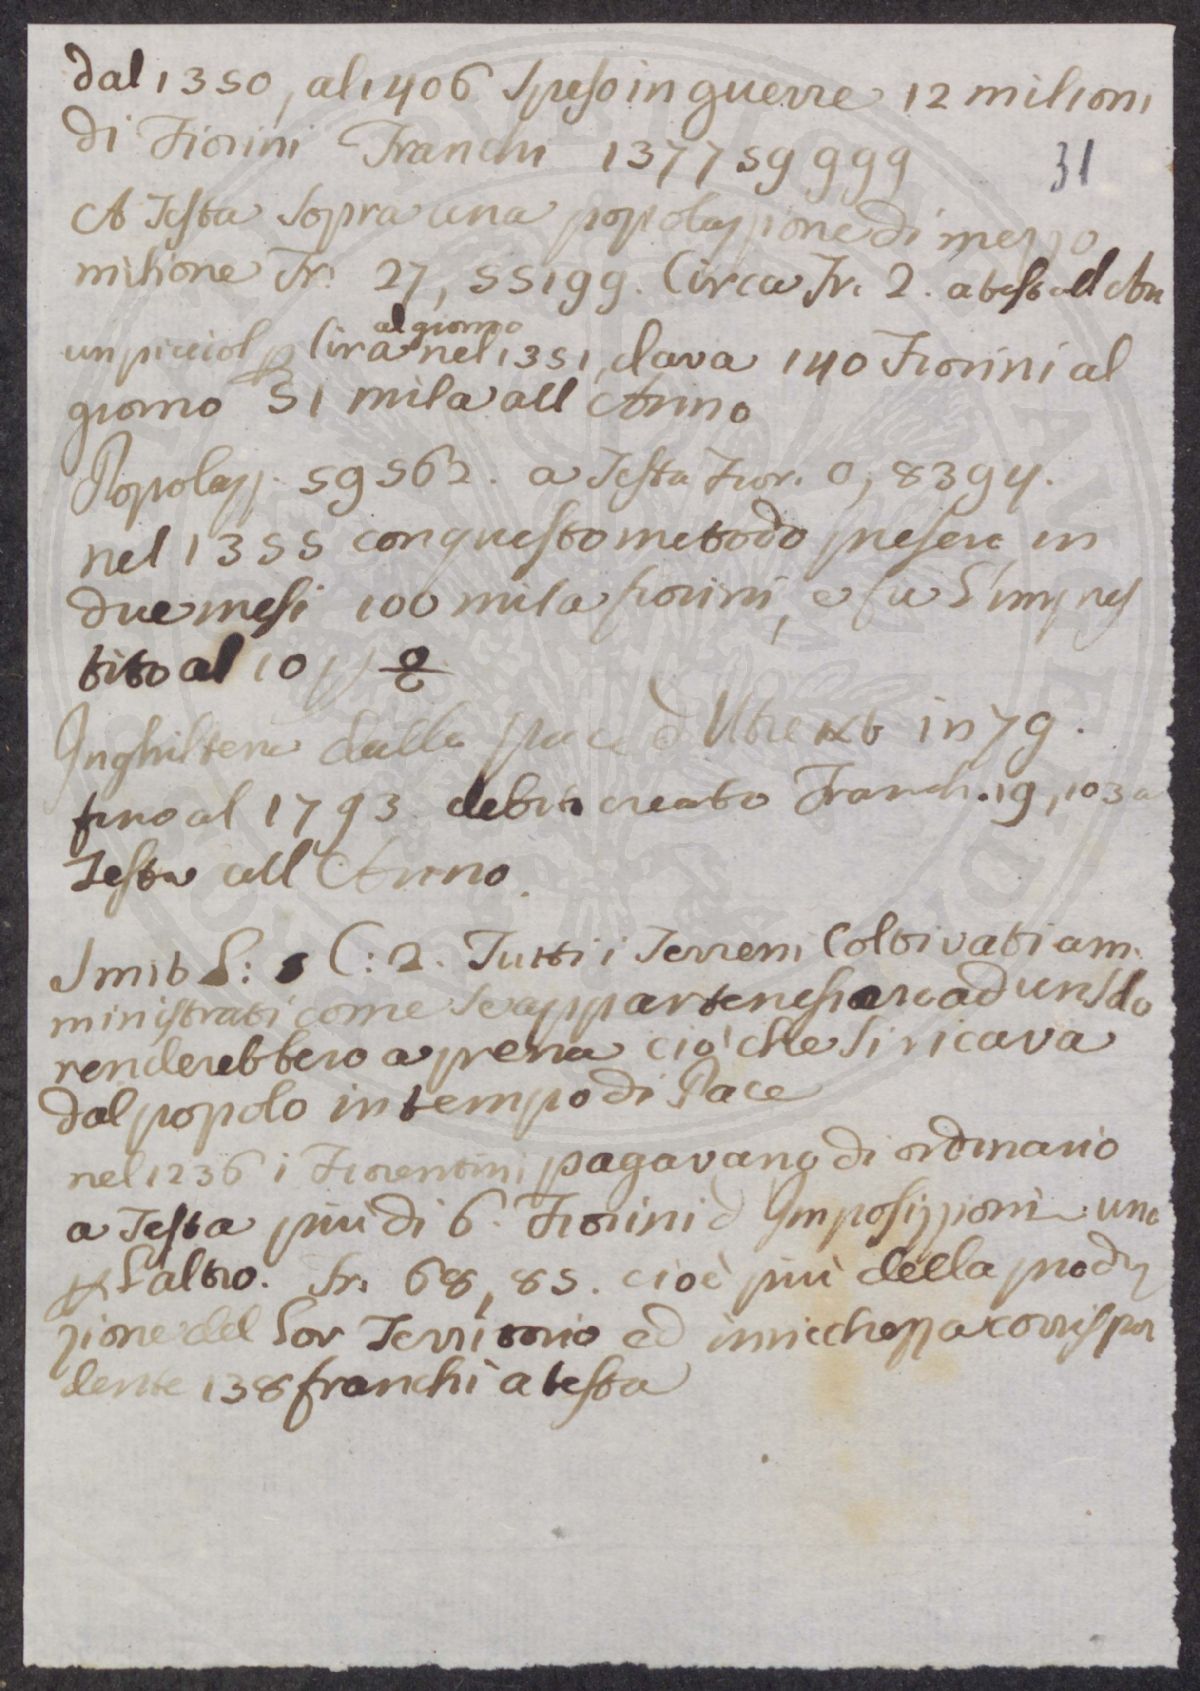 dal 1350, al 1406 Speso in guerre 12 milioni
di Fiorini Franchi 137759999
31
A Testa Sopra una popolazione di mezzo
milione Fr. 27, 55199. Circa Fr. 2. a testa all An
al giorno
un picciol p Lira nel 1351, dava 140 Fiorini al
giorno 51 mila all Anno
Popolaz. 59562. a Testa Fior. 0, 8394.
nel 1355 con questo metodo prese in
due mesi 100 mila fiorini, e fu L'impres
tito al 10 p %
Inghilterra dalla pace d Utrext in 79.
fino al 1793 debito creato Franch. 19, 103 a
Testa all Anno
Smit L: 5 C: 2. Tutti i Terreni Coltivati am.
ministrati come se appartenessero ad un Solo
renderebbero a pena ciò che Si ricava
dal popolo in tempo di Pace
nel 1236 i Fiorentini pagavano di ordinario
a Testa piu di 6. Fiorini d Imposizzioni uno
p L'altro. Fr. 68, 85. cioè più della produ
zione del Lor Territorio ed in ricchezza corrispon
dente 138 franchi a testa